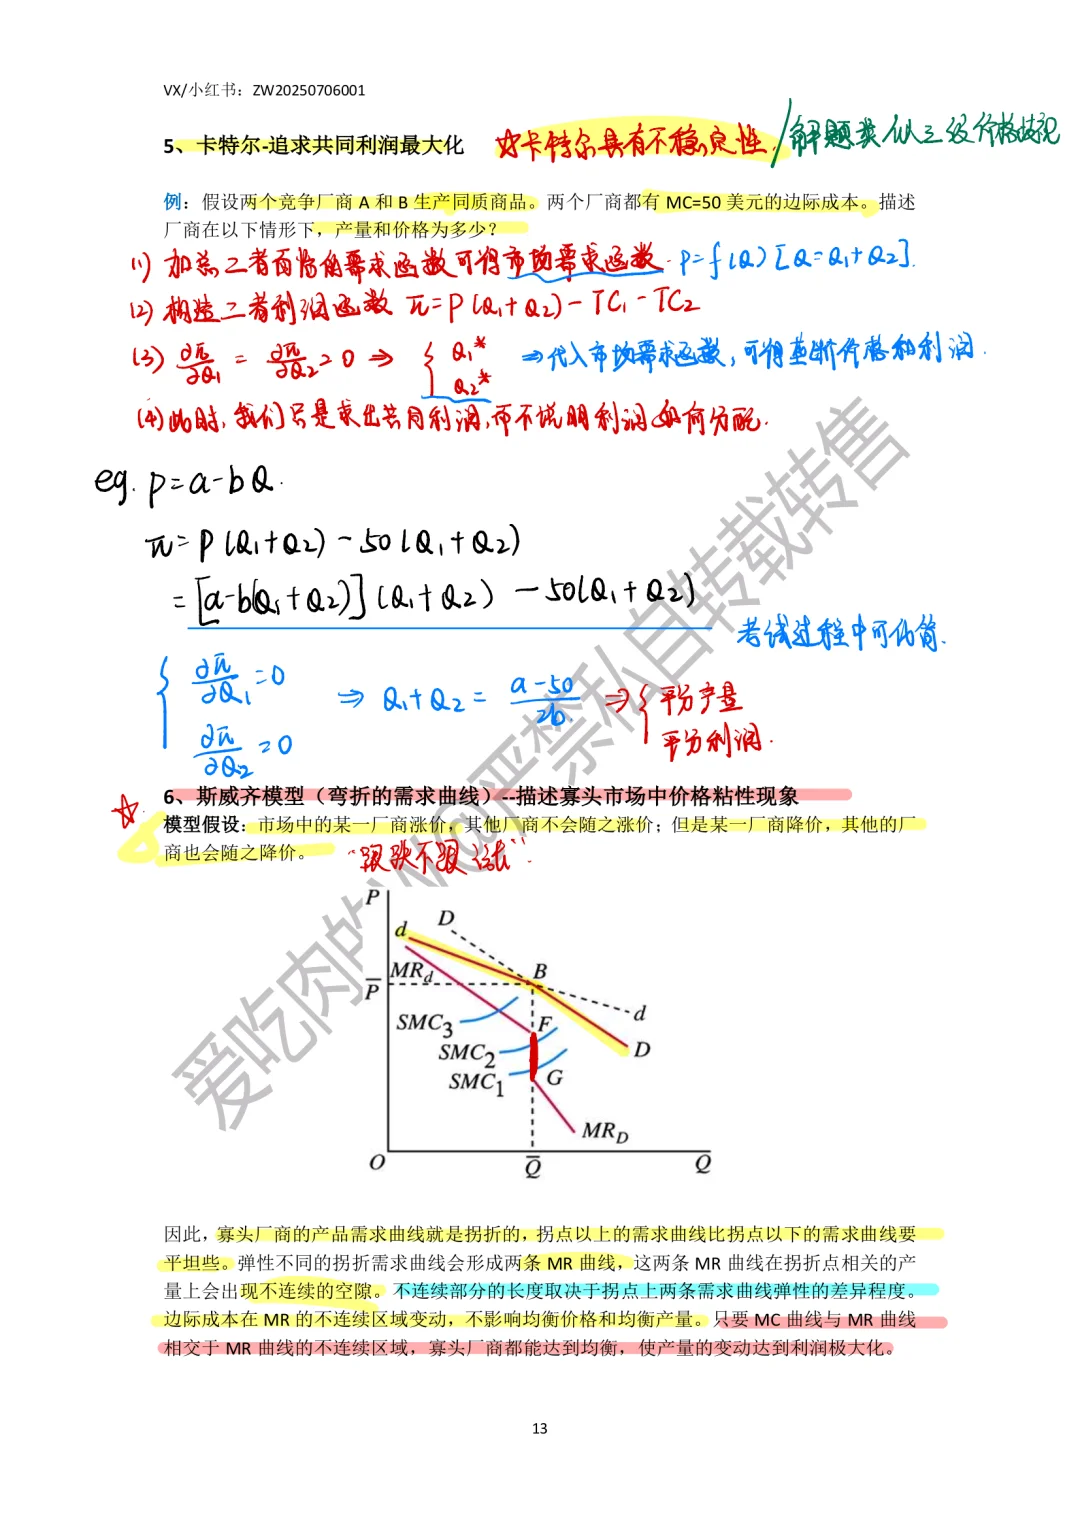 VX/小红书：ZW20250706001
5、卡特尔-追求共同利润最大化 卡特尔具有不稳定性. / 解题类似三级价格歧视
例：假设两个竞争厂商 A 和 B 生产同质商品。两个厂商都有 MC=50 美元的边际成本。描述
厂商在以下情形下，产量和价格为多少？
(1) 加总二者面临的需求函数可得市场需求函数. P=f(Q) [Q=Q₁+Q₂].
(2) 构造二者利润函数 π=P(Q₁+Q₂)-TC₁-TC₂
(3) ∂π/∂Q₁ = ∂π/∂Q₂ = 0 ⇒ { Q₁* Q₂* ⇒代入市场需求函数, 可得垄断价格和利润.
(4) 此时, 我们只是求出共同利润, 而不说明利润如何分配.
eg. P=a-bQ.
π=P(Q₁+Q₂)-50(Q₁+Q₂)
=[a-b(Q₁+Q₂)](Q₁+Q₂)-50(Q₁+Q₂)
考试过程中可化简.
{ ∂π/∂Q₁=0 ∂π/∂Q₂=0 ⇒ Q₁+Q₂= (a-50)/2b ⇒ { 平分产量 平分利润.
6、斯威齐模型（弯折的需求曲线）--描述寡头市场中价格粘性现象
模型假设：市场中的某一厂商涨价，其他厂商不会随之涨价；但是某一厂商降价，其他的厂
商也会随之降价。 “跟跌不跟涨”.
P
D
d
MRd
B
P̄
d
SMC₃
F
SMC₂
D
SMC₁
G
MR_D
O
Q̄
Q
因此，寡头厂商的产品需求曲线就是拐折的，拐点以上的需求曲线比拐点以下的需求曲线要
平坦些。弹性不同的拐折需求曲线会形成两条 MR 曲线，这两条 MR 曲线在拐折点相关的产
量上会出现不连续的空隙。不连续部分的长度取决于拐点上两条需求曲线弹性的差异程度。
边际成本在 MR 的不连续区域变动，不影响均衡价格和均衡产量。只要 MC 曲线与 MR 曲线
相交于 MR 曲线的不连续区域，寡头厂商都能达到均衡，使产量的变动达到利润极大化。
13